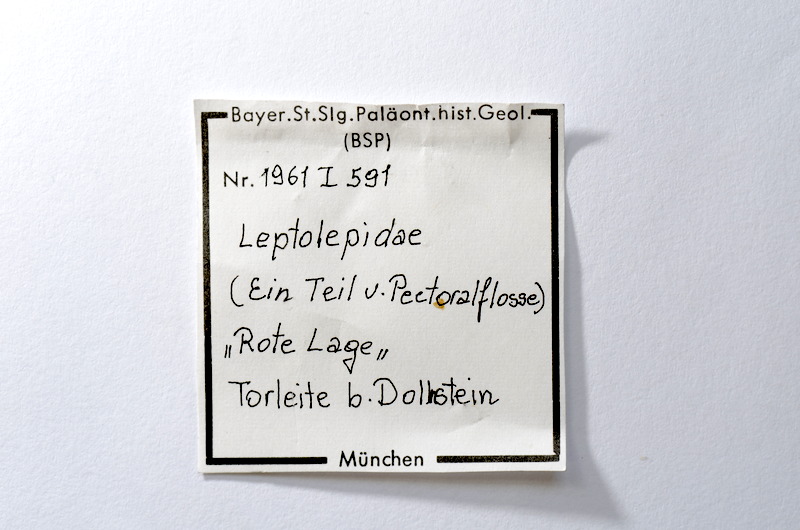 Bayer.St.Slg.Paläont.hist.Geol.
(BSP)
Nr. 1961 I 591
Leptolepidae
(Ein Teil v. Pectoralflosse)
„Rote Lage„
Torleite b. Dollnstein
München